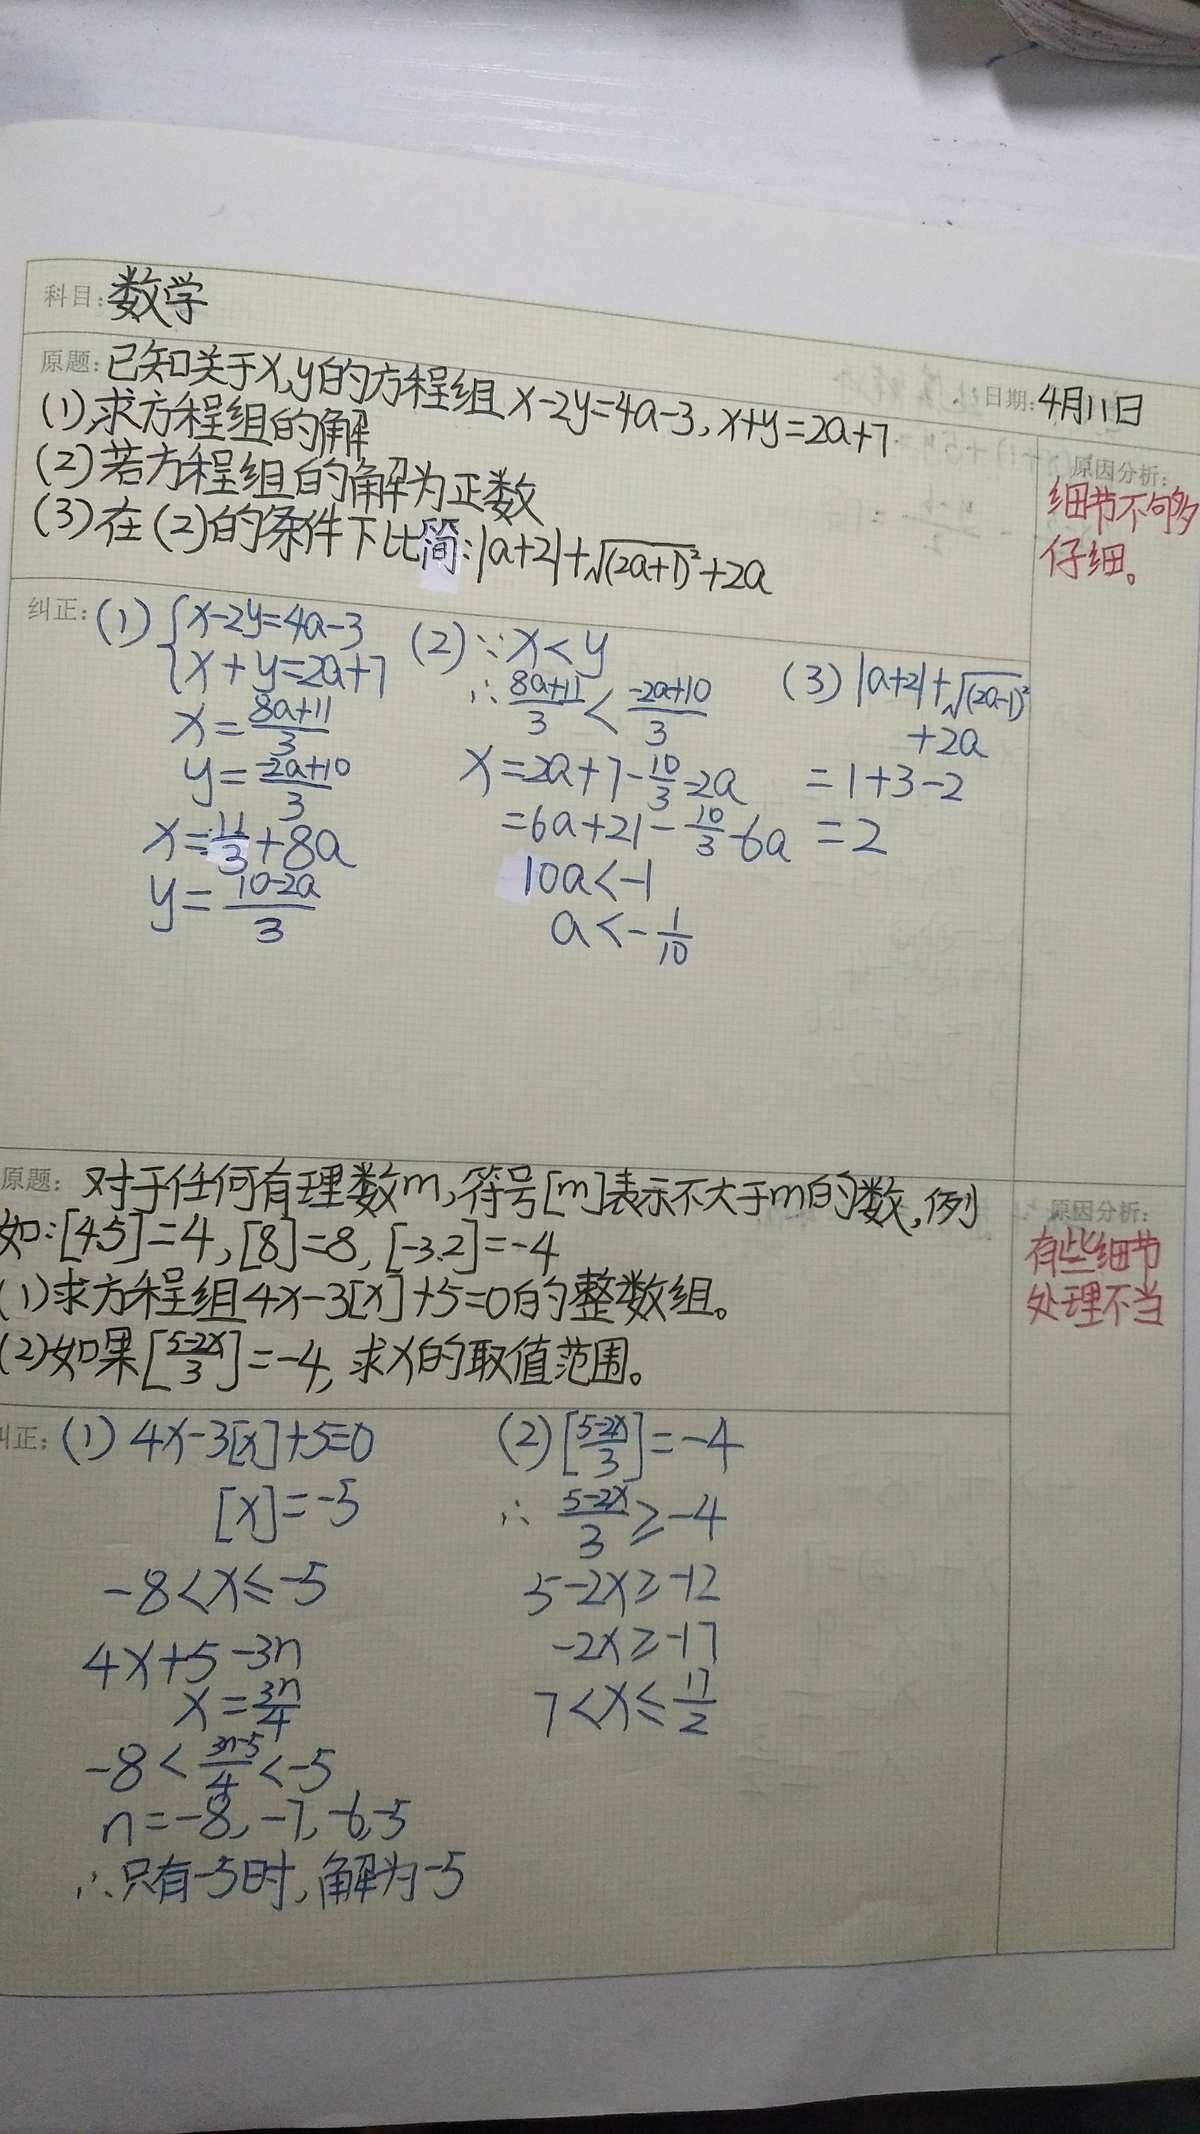 科目: 数学
日期: 4月11日
原题: 已知关于x,y的方程组x-2y=4a-3,x+y=2a+7
(1)求方程组的解
(2)若方程组的解为正数
(3)在(2)的条件下比简:|a+2|+√(2a+1)²+2a
原因分析:
细节不够
仔细。
纠正: (1) {x-2y=4a-3
x+y=2a+7
x=(8a+11)/3
y=(-2a+10)/3
x=11/3+8a
y=(10-2a)/3
(2)∵x<y
∴(8a+11)/3<(-2a+10)/3
x=2a+7-10/3-2a
=6a+21-10/3-6a
10a<-1
a<-1/10
(3)|a+2|+√(2a-1)²
+2a
=1+3-2
=2
原题: 对于任何有理数m,符号[m]表示不大于m的数,例
如:[4.5]=4,[8]=8,[-3.2]=-4
(1)求方程组4x-3[x]+5=0的整数组。
(2)如果[(5-2x)/3]=-4,求x的取值范围。
原因分析:
有些细节
处理不当
纠正: (1) 4x-3[x]+5=0
[x]=-5
-8<x≤-5
4x+5-3n
x=3n/4
-8<(3n-5)/4<-5
n=-8,-7,-6,-5
∴只有-5时,解为-5
(2)[(5-2x)/3]=-4
∴(5-2x)/3≥-4
5-2x≥-12
-2x≥-17
7<x≤17/2